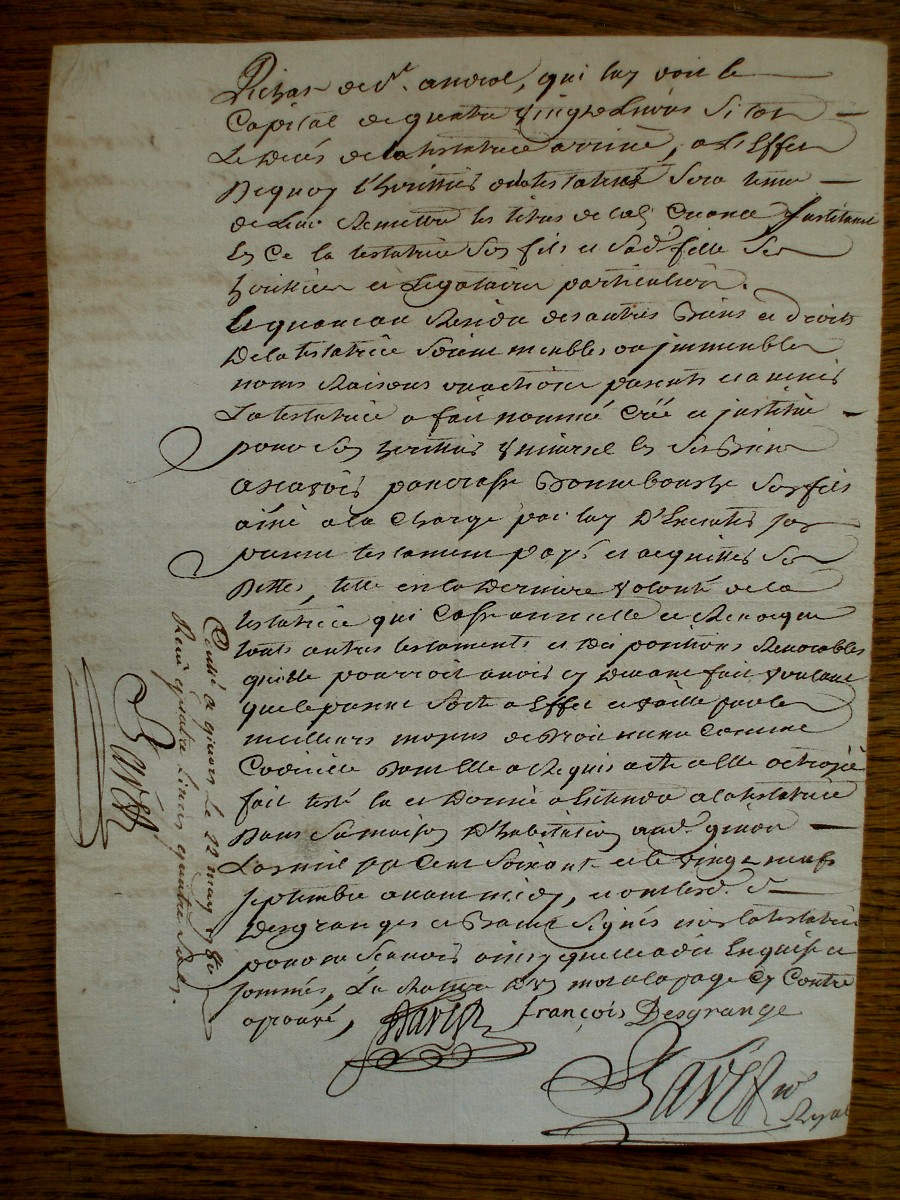 de Sr. andreol, qui luy doit le
Capital de quatre vingt Livres Sitot
Le Deces de la testatrice arrivé, a L'Effet
Dequoy l'heritier de la testatrice Sera tenu
de Leur Remettre les titres de Creance Justituant
En Ce la testatrice Son fils et Sad. fille Ses
heritiers et Legataires particuliers.
Et quant au Residu des autres Biens et Droits
De la testatrice Soient meubles ou jmmeubles
noms Raisons ou actions presents et avenir
La testatrice a fait nommé Créé et justitué
pour Son heritier Universel En Ses Biens
ascavoir pancrasse Sonfils
ainé a la Charge par luy D'Executer Son
present testament payer et acquitter Ses
Dettes, telle est la Derniere Volonté de la
testatrice qui Casse annulle et Revoque
touts autres testaments et Dispositions Revocables
quelle pourroit avoir cy Devant fait Voulant
que le present Sorte a Effet et Vaille par les
meilleurs moyens de Droit meme Comme
Codicille Dont Elle a Requis acte a Elle octroyé
fait testé lu et Donné a Entendre a la testatrice
Dans Sa maison D'habitation aud. givors
L'an mil Sept Cent Soixante et le Vingt neuf
Septembre avant midy, et ont lesd. Srs
Desgranges et Signés non la testatrice
pour ne Scavoir ainsy quelle a dit Enquise et
Sommée, La Rature D'un mot a la page Cy Contre
aprouvé, François Desgrange
Royal
Conllé a givors Le 22 may
Reçu quatre Livres quatre Sols.